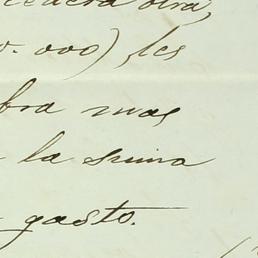 otra,
000) les
bra mas
la suma
gasto.